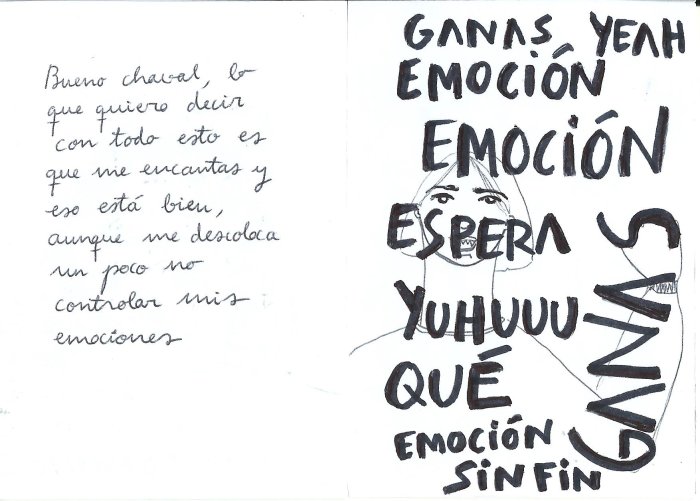 Bueno chaval, lo
que quiero decir
con todo esto es
que me encantas y
eso está bien,
aunque me descoloca
un poco no
controlar mis
emociones
GANAS YEAH
EMOCIÓN
EMOCIÓN
ESPERA
YUHUUU
QUÉ
EMOCIÓN
SINFIN
GANAS